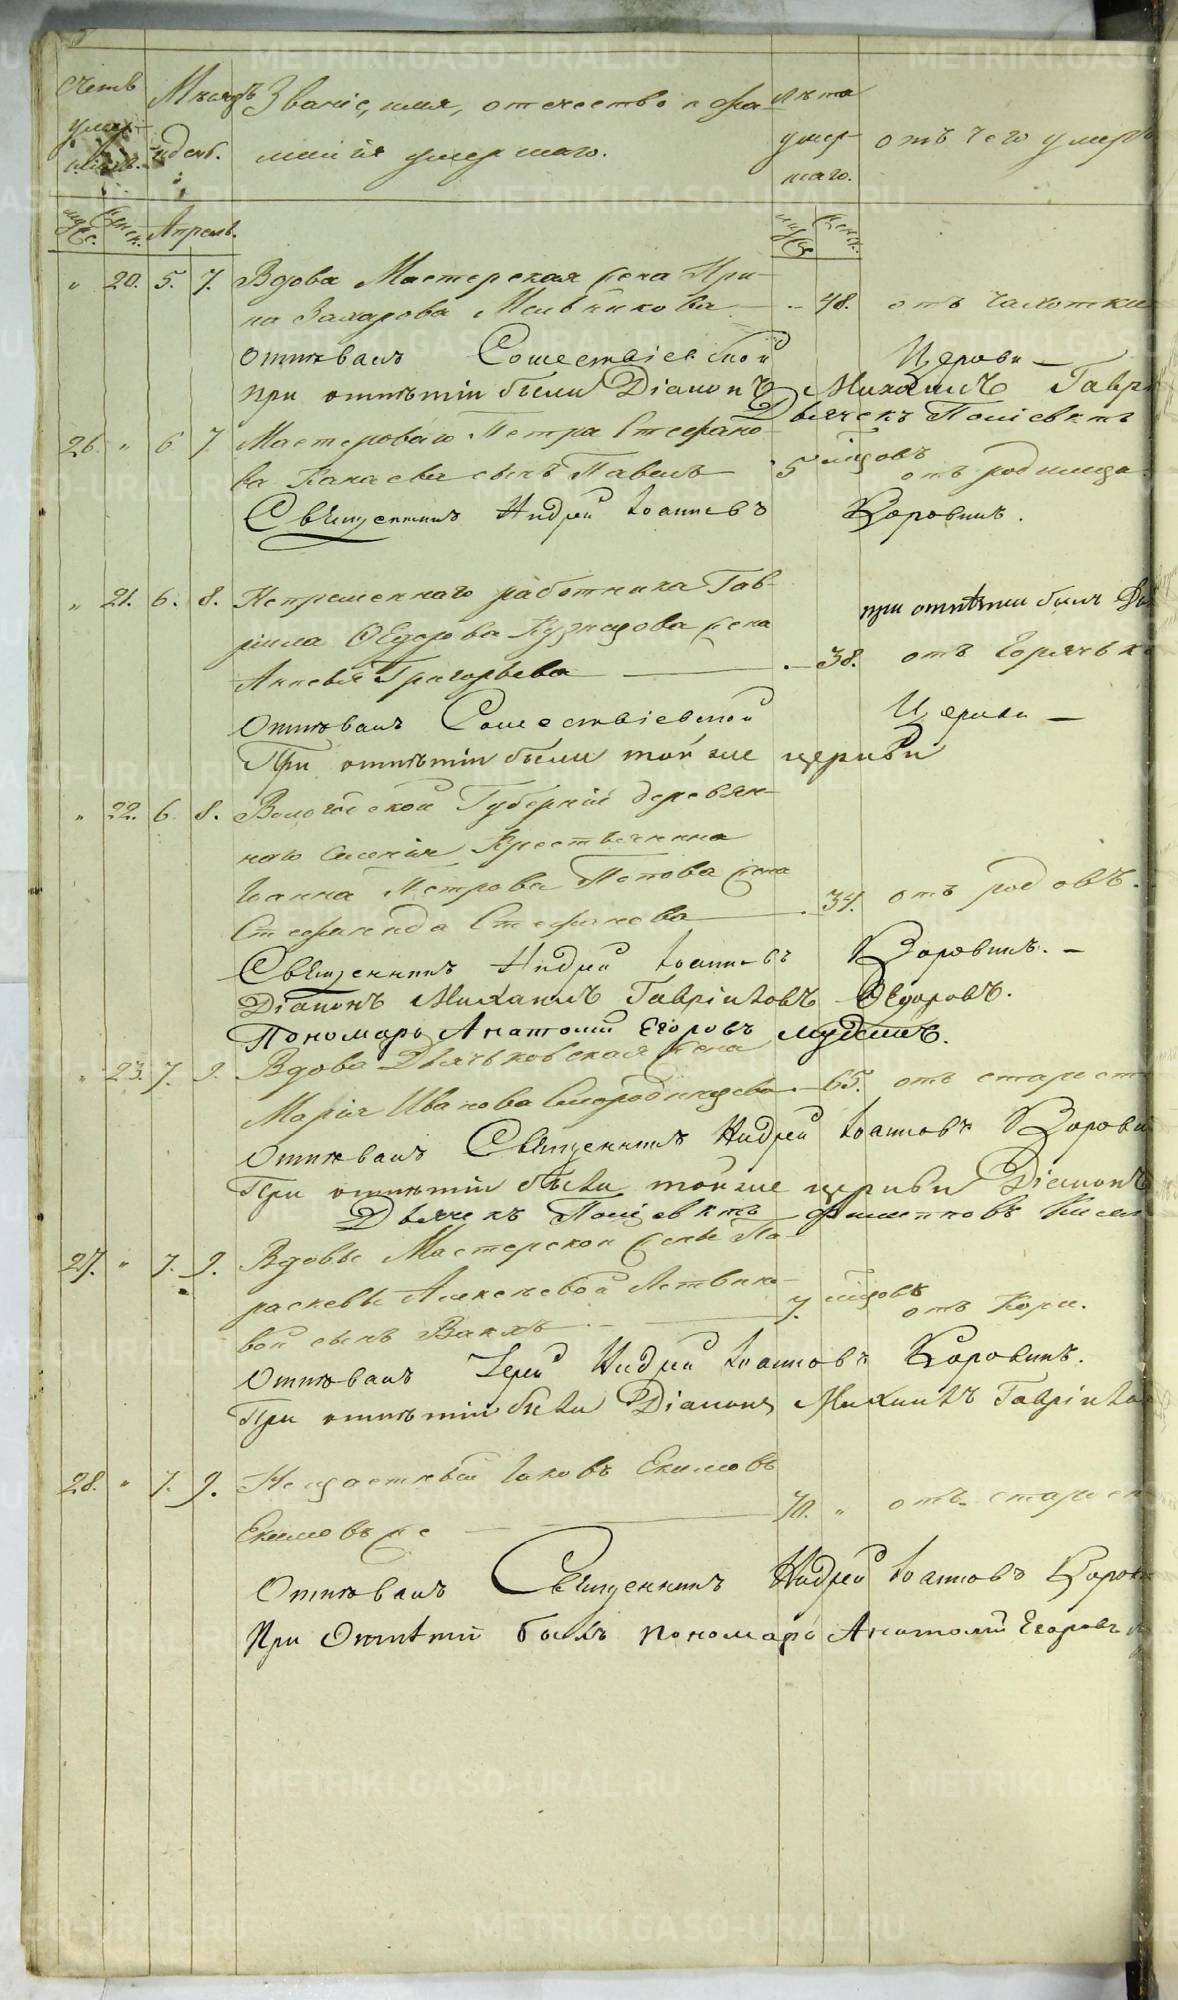 Счетъ умер- шихъ.
Мѣсяцъ и день.
Званіе, имя, отечество и фа-
милія умершаго.
Лѣта умер- шаго.
отъ чего умеръ
муж. женск. Апрель. муж. женск.
" 20. 5. 7. Вдова Мастерская жена Ири-
на Захарова Мельникова — " 48. отъ чахотки
Отпѣвалъ Сошествіевской Церкви —
при отпѣтіи были Діаконъ Михаилъ Гаврі
Дьячекъ Поліевктъ
26. " 6 7. Мастероваго Петра Стефано-
ва Канаева сынъ Павелъ 5 мѣсцовъ отъ родимца.
Священникъ Андрей Іоанновъ Коровинъ.
" 21. 6. 8. Непременнаго работника Гав-
при отпѣтіи былъ
ріила Ѳедорова Кузнецова жена
Анисья Григорьева — 38. отъ Горячьк
Отпѣвалъ Сошествіевской Церкви —
При отпѣтіи были той же церкви
" 22. 6. 8. Вологодской Губерніи деревян-
наго селенія Крестьянина
Іоанна Петрова Попова жена
Стефанида Стефанова — 34. отъ родовъ.
Священникъ Андрей Іоанновъ Коровинъ. —
Діаконъ Михаилъ Гавріиловъ Ѳедоровъ.
Пономарь Анатолій Егоровъ
" 23. 7. 9. Вдова Дьячьковская жена
Марія Иванова Смородинцева — 65. отъ старост
Отпѣвалъ Священникъ Андрей Іоанновъ Корови
При отпѣтіи были тойже церкви Діаконъ
Дьячекъ Поліевктъ Филипповъ
27. " 7. 9. Вдовы Мастерской жены Па-
раскевы Алексѣевой Летвино-
вой сынъ — 7. мѣсцовъ отъ Кори.
Отпѣвалъ Іерей Андрей Іоанновъ Коровинъ.
При отпѣтіи были Діаконъ Михаилъ Гавріило
28. " 7. 9. Нещастный Іаковъ Екимовъ
Екимовъ же — 70. " отъ старос
Отпѣвалъ Священникъ Андрей Іоанновъ Коров
При Отпѣтіи былъ пономарь Анатолій Егоровъ